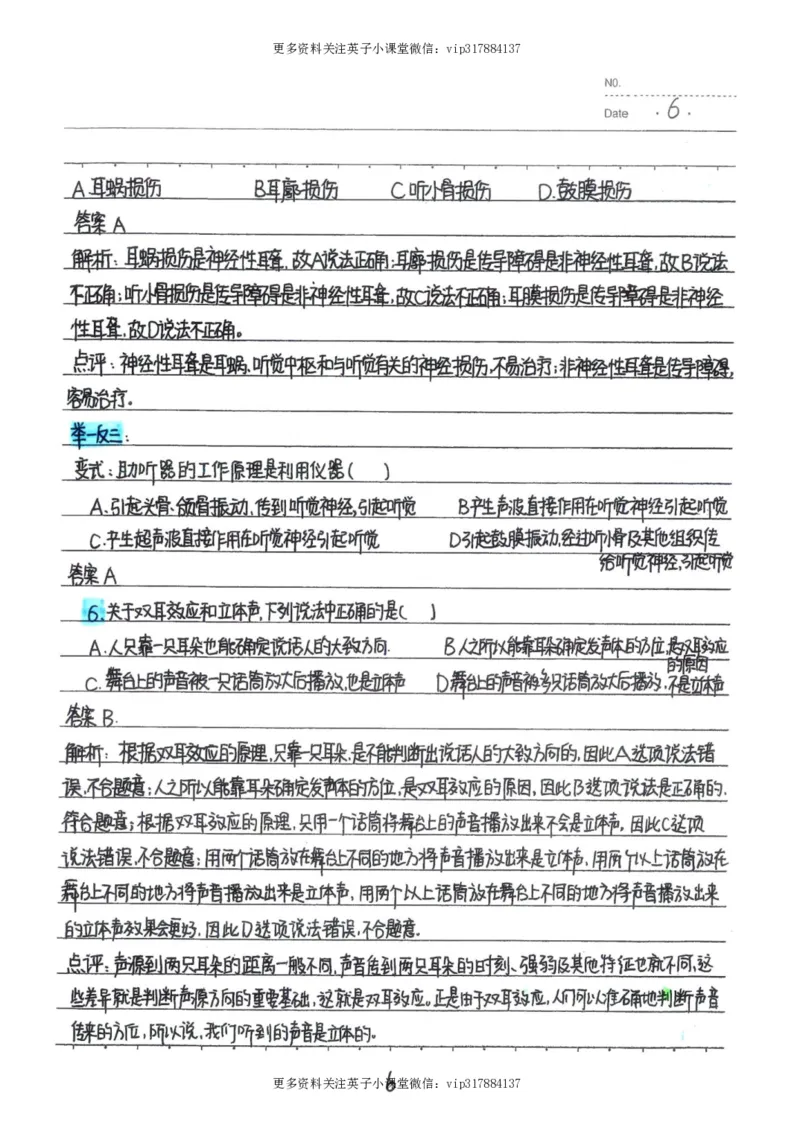 更多资料关注英子小课堂微信：vip317884137
NO.
Date · 6 ·
A.耳蜗损伤 B耳廓损伤 C.听小骨损伤 D.鼓膜损伤
答案 A
解析：耳蜗损伤是神经性耳聋，故A说法正确；耳廓损伤是传导障碍是非神经性耳聋，故B说法
不正确；听小骨损伤是传导障碍是非神经性耳聋，故C说法不正确；耳膜损伤是传导障碍是非神经
性耳聋，故D说法不正确。
点评：神经性耳聋是耳蜗、听觉中枢和与听觉有关的神经损伤，不易治疗；非神经性耳聋是传导障碍，
容易治疗。
举一反三：
变式：助听器的工作原理是利用仪器（ ）
A.引起头骨、颌骨振动，传到听觉神经，引起听觉 B产生声波直接作用在听觉神经引起听觉
C.产生超声波直接作用在听觉神经引起听觉 D引起鼓膜振动，经过听小骨及其他组织传
给听觉神经，引起听觉
答案 A
6.关于双耳效应和立体声，下列说法中正确的是（ ）
A.人只靠一只耳朵也能确定说话人的大致方向. B人之所以能靠耳朵确定发声体的方位，是双耳效应
的原因
C.舞台上的声音被一只话筒放大后播放，也是立体声 D舞台上的声音被多只话筒放大后播放，不是立体声
答案 B.
解析：根据双耳效应的原理，只靠一只耳朵，是不能判断出说话人的大致方向的，因此A选项说法错
误，不合题意；人之所以能靠耳朵确定发声体的方位，是双耳效应的原因，因此B选项说法是正确的，
符合题意；根据双耳效应的原理，只用一个话筒将舞台上的声音播放出来不会是立体声，因此C选项
说法错误，不合题意；用两个话筒放在舞台上不同的地方将声音播放出来是立体声，用两个以上话筒放在
舞台上不同的地方将声音播放出来是立体声，用两个以上话筒放在舞台上不同的地方将声音播放出来
的立体声效果会更好，因此D选项说法错误，不合题意。
点评：声源到两只耳朵的距离一般不同，声音传到两只耳朵的时刻、强弱及其他特征也就不同，这
些差异就是判断声源方向的重要基础，这就是双耳效应。正是由于双耳效应，人们可以准确地判断声音
传来的方位，所以说，我们听到的声音是立体的。
6
更多资料关注英子小课堂微信：vip317884137